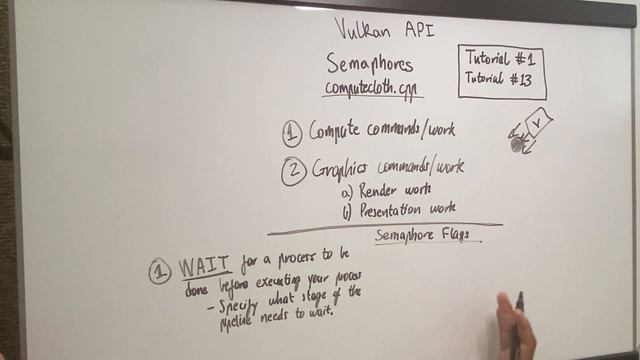 Vulkan API
Semaphores
computecloth.cpp
Tutorial #1
Tutorial #13
① Compute commands/work
② Graphics commands/work
a) Render work
b) Presentation work
Semaphore Flags
① WAIT for a process to be
done before executing your process
- Specify what stage of the
pipeline needs to wait.
V